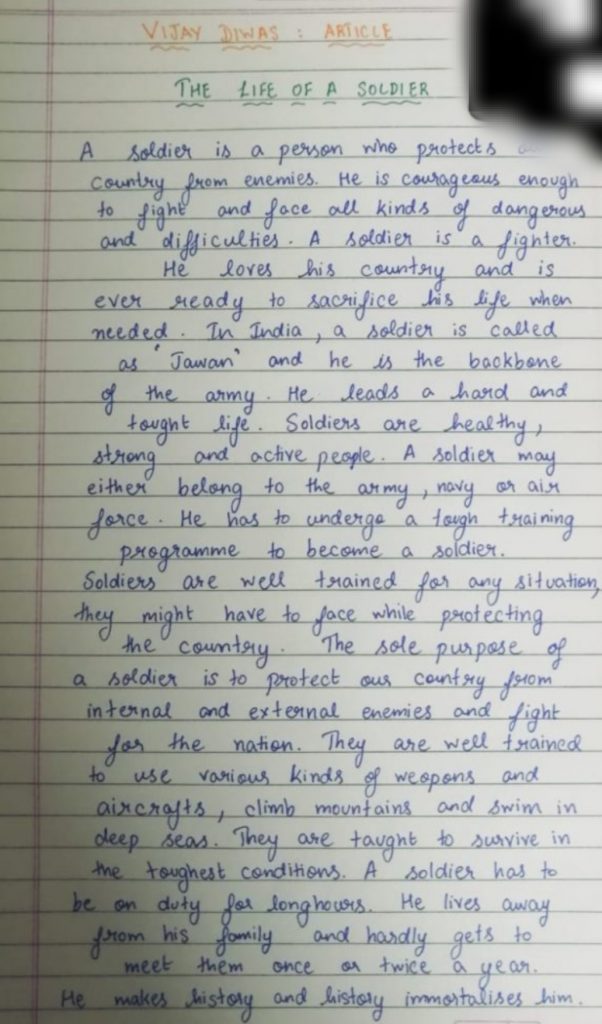 VIJAY DIWAS : ARTICLE
THE LIFE OF A SOLDIER
A soldier is a person who protects
country from enemies. He is courageous enough
to fight and face all kinds of dangerous
and difficulties. A soldier is a fighter.
He loves his country and is
ever ready to sacrifice his life when
needed. In India, a soldier is called
as 'Jawan' and he is the backbone
of the army. He leads a hard and
tought life. Soldiers are healthy,
strong and active people. A soldier may
either belong to the army, navy or air
force. He has to undergo a tough training
programme to become a soldier.
Soldiers are well trained for any situation,
they might have to face while protecting
the country. The sole purpose of
a soldier is to protect our country from
internal and external enemies and fight
for the nation. They are well trained
to use various kinds of weapons and
aircrafts, climb mountains and swim in
deep seas. They are taught to survive in
the toughest conditions. A soldier has to
be on duty for longhours. He lives away
from his family and hardly gets to
meet them once or twice a year.
He makes history and history immortalises him.